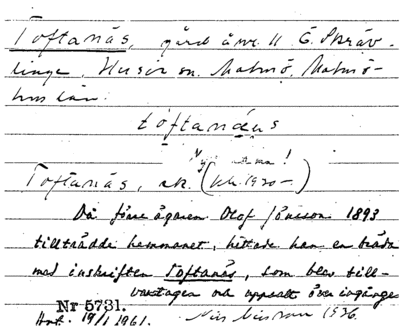 Toftanäs, gård å nr. 11 Ö. Skräv-
linge, Husie sn. Malmö, Malmö-
hus län.
toftanäus
Toftanäs, sk. (
Då förre ägaren Olof Jönsson 1893
tillträdde hemmanet, hittade han en bräda
med inskriften Toftanäs, som blev till-
varatagen och uppsatt över ingången
Nr 5731.
Ant. 19/1 1961. 1936.